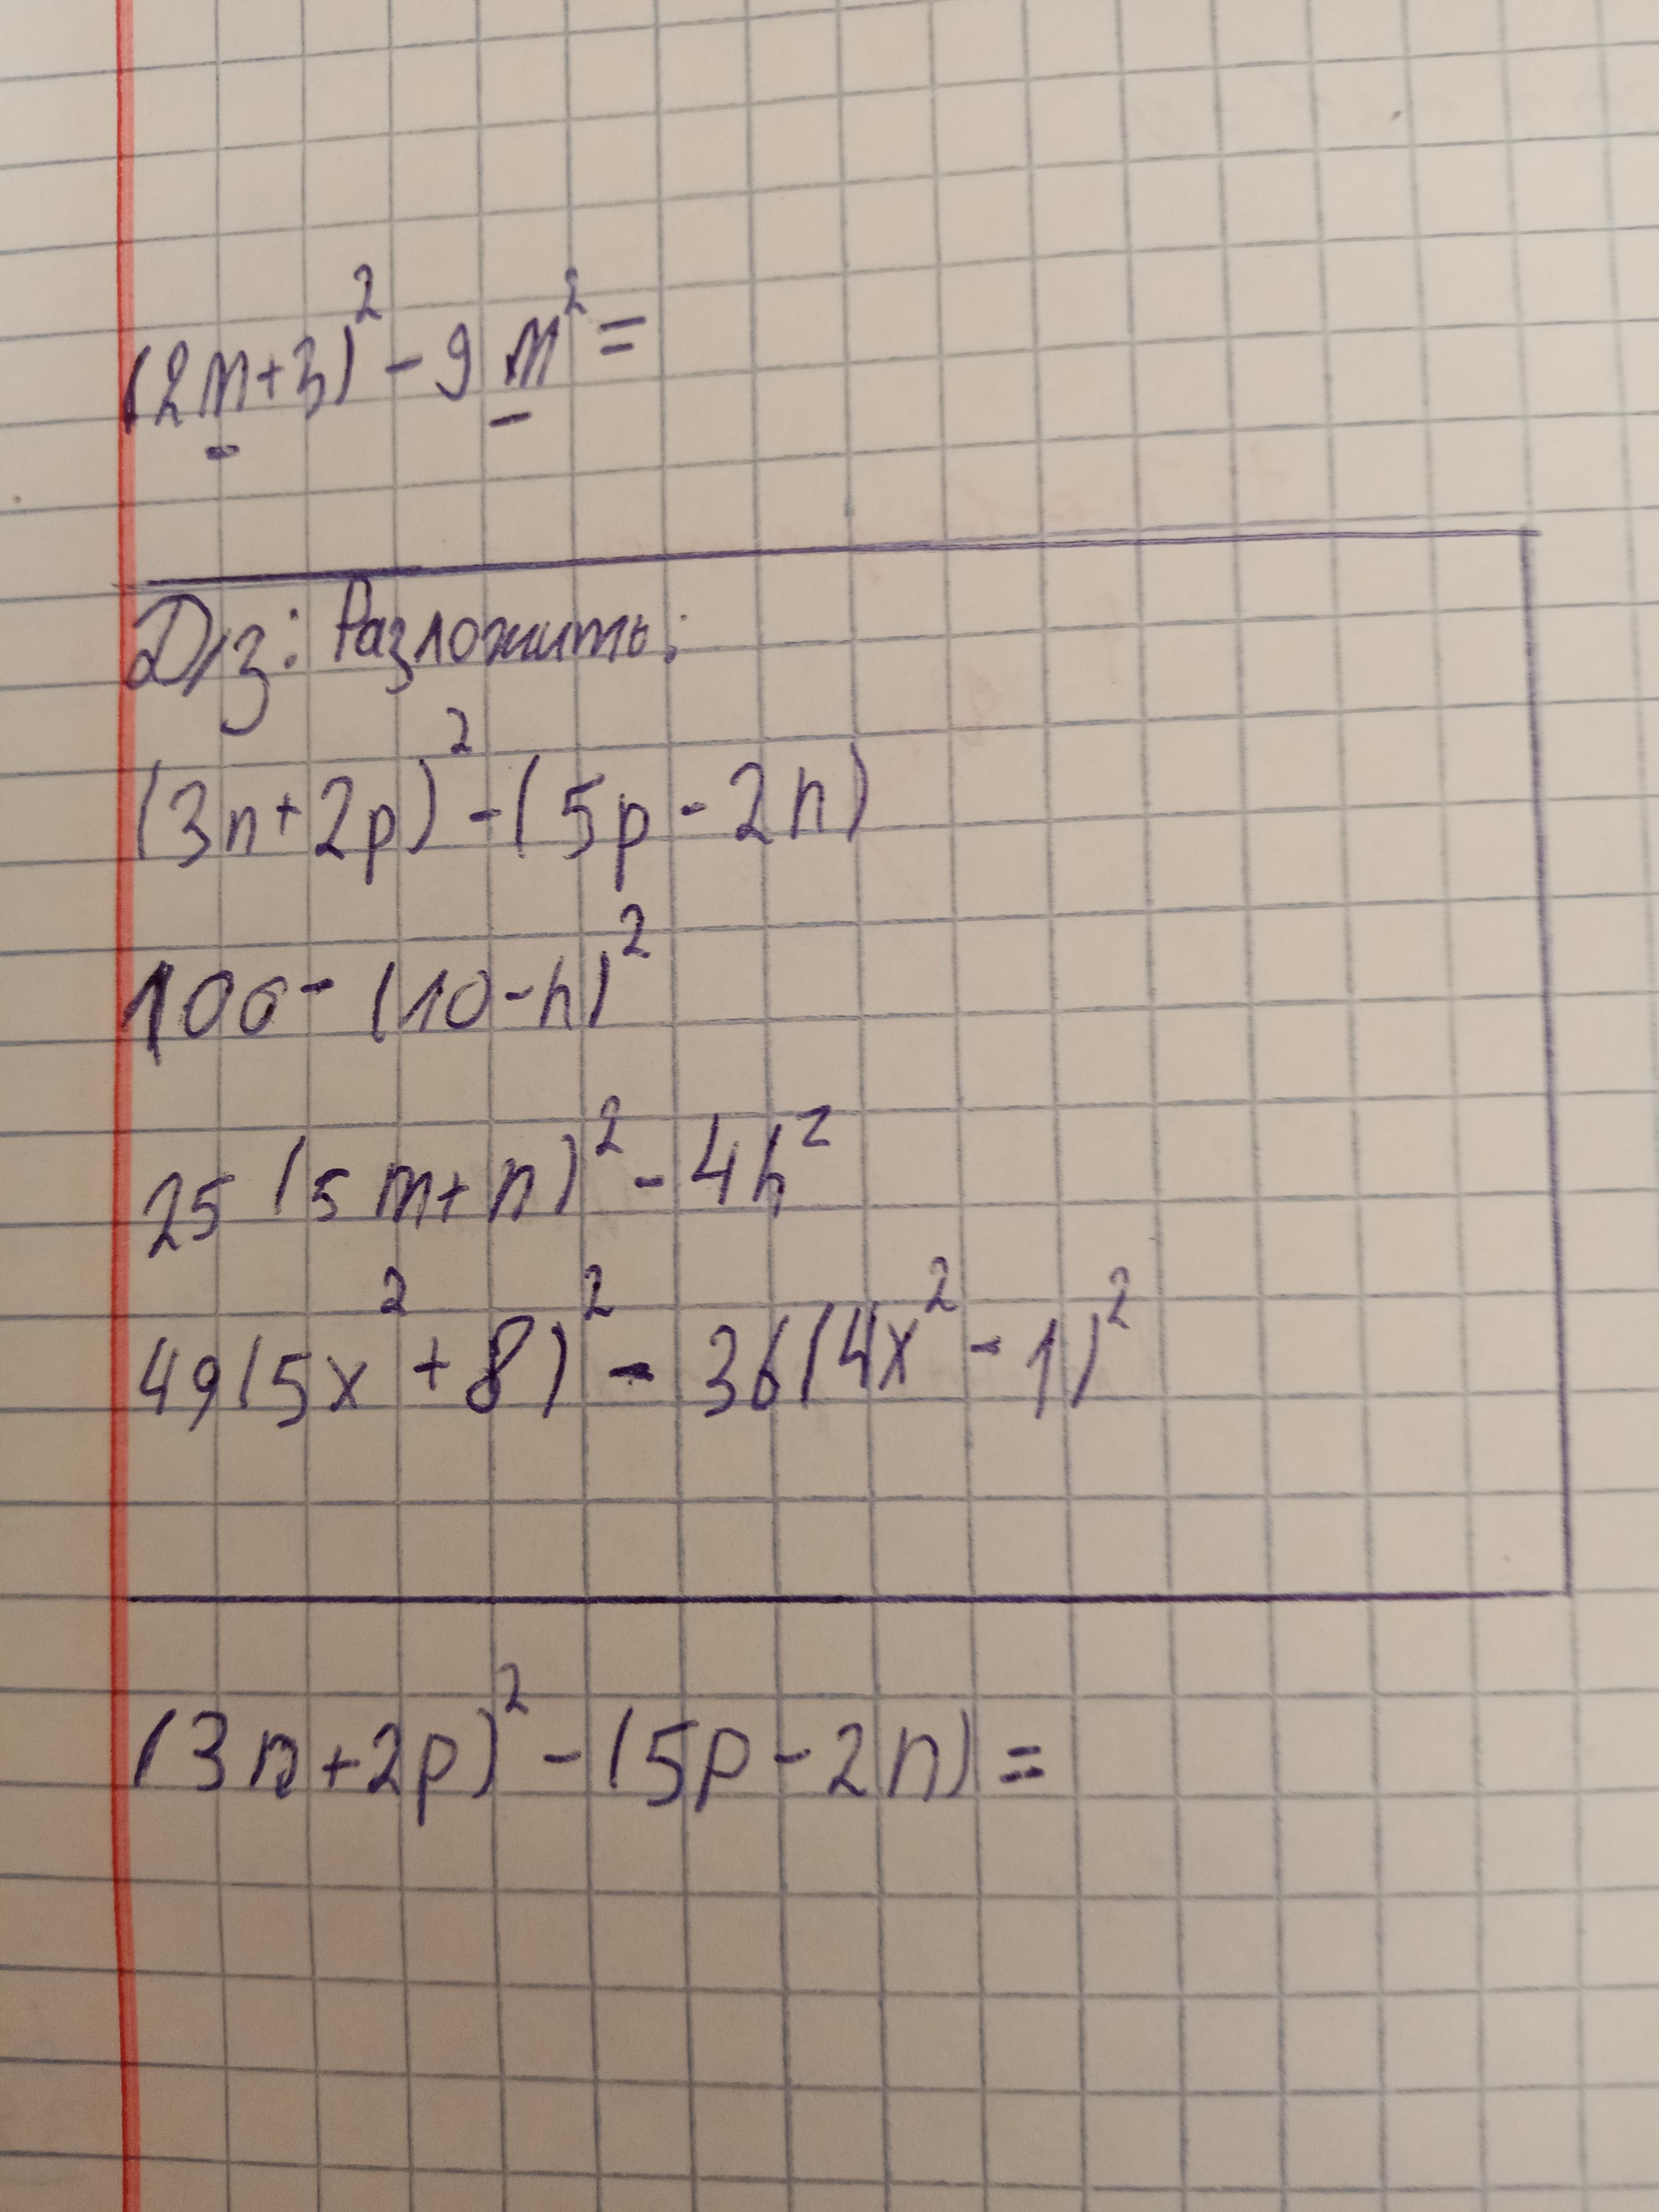 (2m+3)² - 9m² =
Д/з: Разложить:
(3n+2p)² - (5p - 2n)
100 - (10 - n)²
25(5m+n)² - 4n²
49(5x² + 8)² - 36(4x² - 1)²
(3n+2p)² - (5p - 2n) =